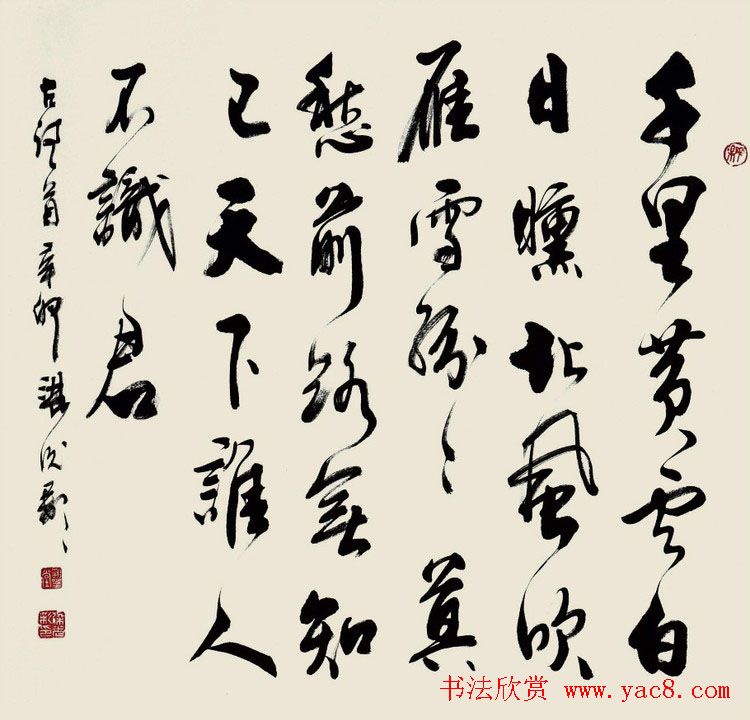 千里黄云白
日曛北風吹
雁雪紛々莫
愁前路無知
己天下誰人
不識君
古詩一首辛卯
书法欣赏 www.yac8.com